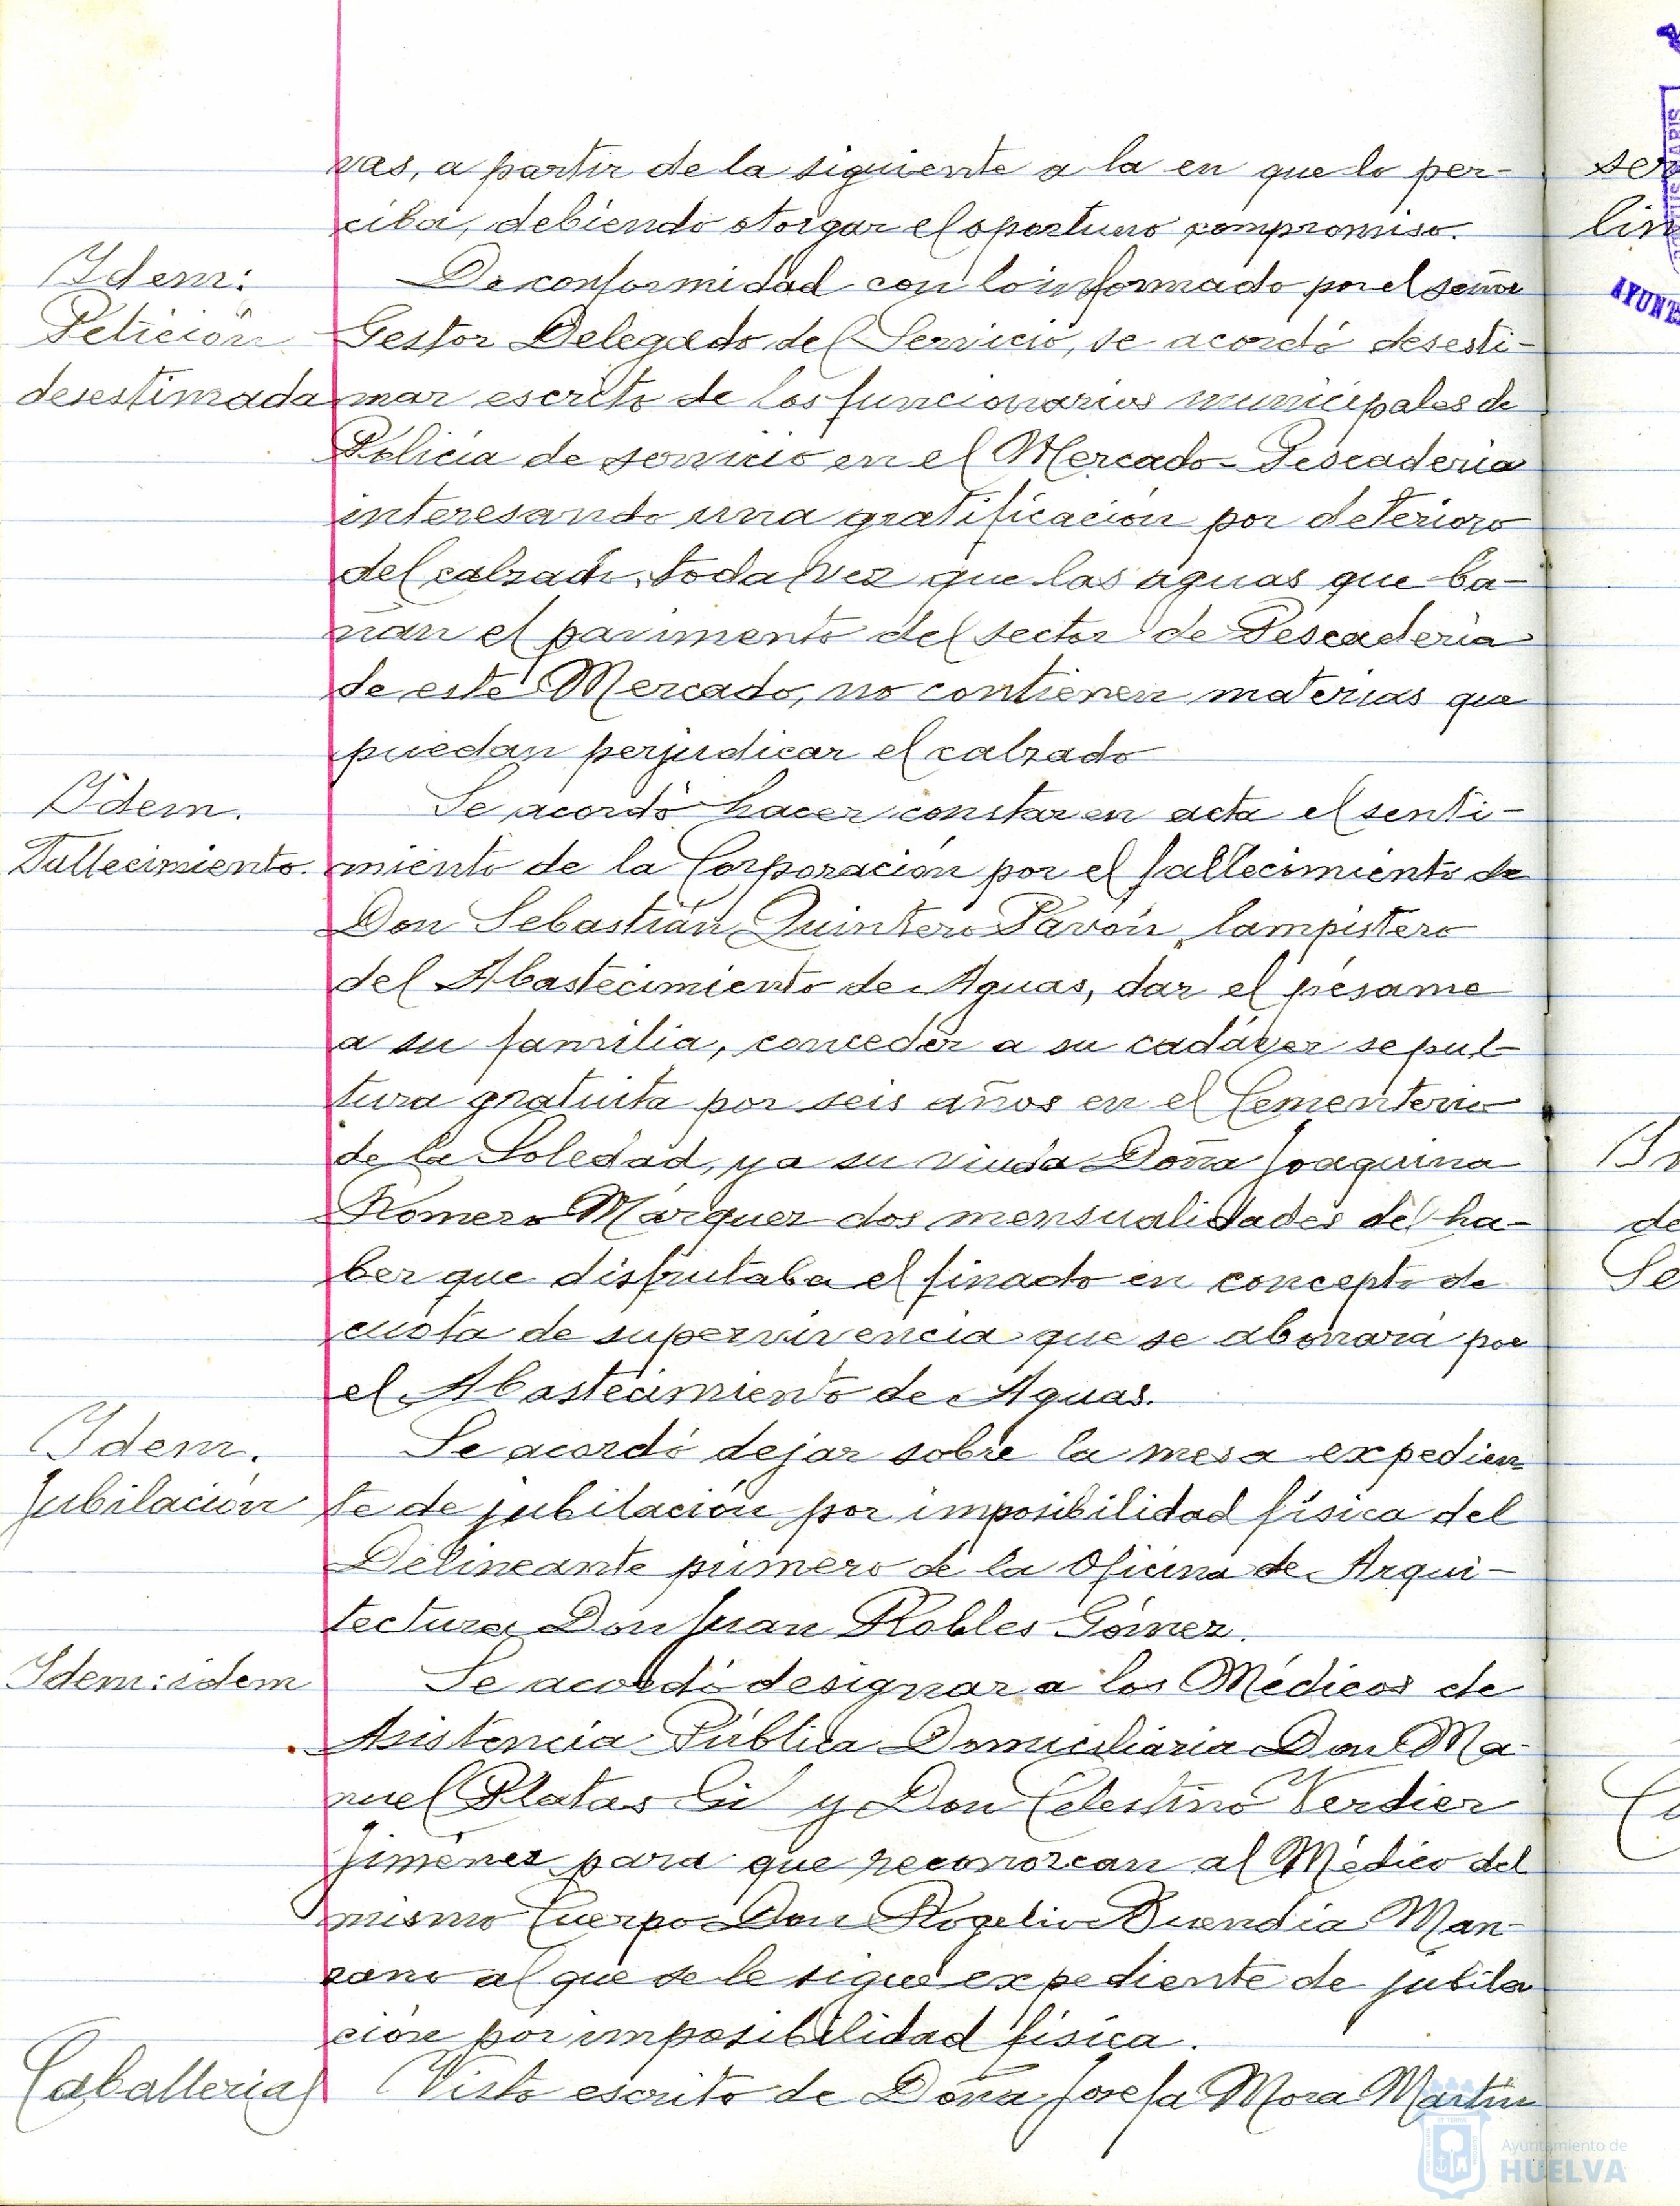 vas, a partir de la siguiente a la en que lo per-
ciba, debiendo otorgar el oportuno compromiso.
Idem:
Petición
desestimada
De conformidad con lo informado por el señor
Gestor Delegado del Servicio, se acordó desesti-
mar escrito de los funcionarios municipales de
Policia de servicio en el Mercado-Pescaderia
interesando una gratificación por deterioro
del calzado, toda vez que las aguas que ba-
ñan el pavimento del sector de Pescaderia
de este Mercado, no contienen materias que
puedan perjudicar el calzado
Idem.
Fallecimiento.
Se acordó hacer constar en acta el senti-
miento de la Corporación por el fallecimiento de
Don Sebastián Quintero Pavón, lampistero
del Abastecimiento de Aguas, dar el pésame
a su familia, conceder a su cadáver sepul-
tura gratuita por seis años en el Cementerio
de la Soledad, y a su viuda Doña Joaquina
Romero Márquez dos mensualidades del ha-
ber que disfrutaba el finado en concepto de
cuota de supervivencia que se abonará por
el Abastecimiento de Aguas.
Idem.
Jubilación
Se acordó dejar sobre la mesa expedien-
te de jubilación por imposibilidad física del
Delineante primero de la Oficina de Arqui-
tectura Don Juan Robles Gómez.
Idem: idem
Se acordó designar a los Médicos de
Asistencia Pública Domiciliaria Don Ma-
nuel Platas Gil y Don Celestino Verdier
Jiménez para que reconozcan al Médico del
mismo Cuerpo Don Rogelio Buendía Man-
zano al que se le sigue expediente de jubila
ción por imposibilidad física.
Caballerias
Visto escrito de Doña Josefa Mora Martín
ser
lin
AYUNT
de
Se
Ayuntamiento de
HUELVA